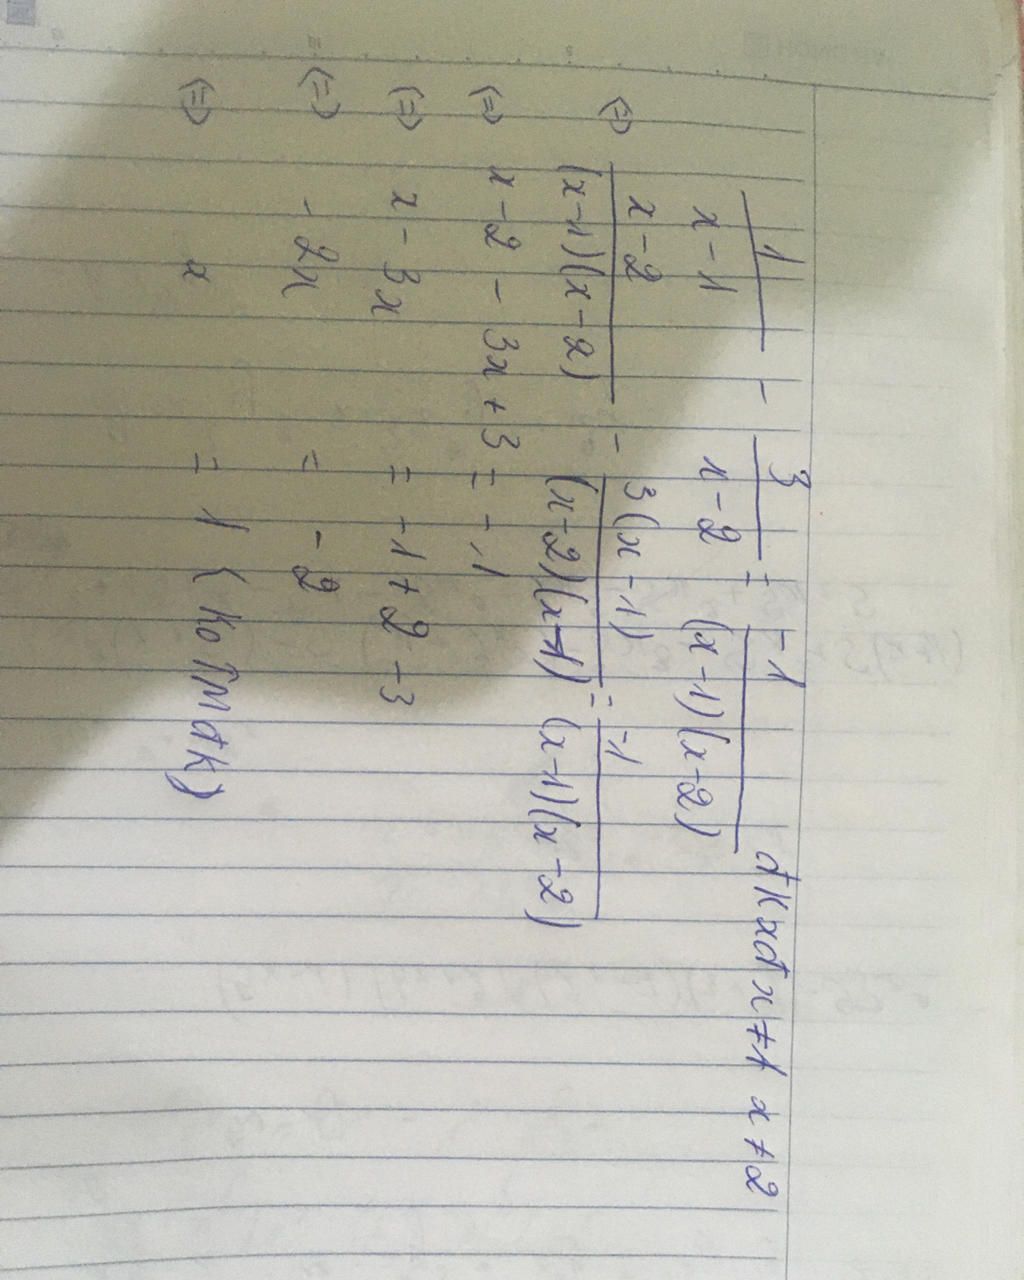 1/(x-1) - 3/(x-2) = -1/((x-1)(x-2)) đkxđ x≠1 x≠2
(=) (x-2)/((x-1)(x-2)) - 3(x-1)/((x-2)(x-1)) = -1/((x-1)(x-2))
(=) x-2 - 3x+3 = -1
(=) x - 3x = -1+2-3
(=) -2x = -2
(=) x = 1 (ko TMđk)